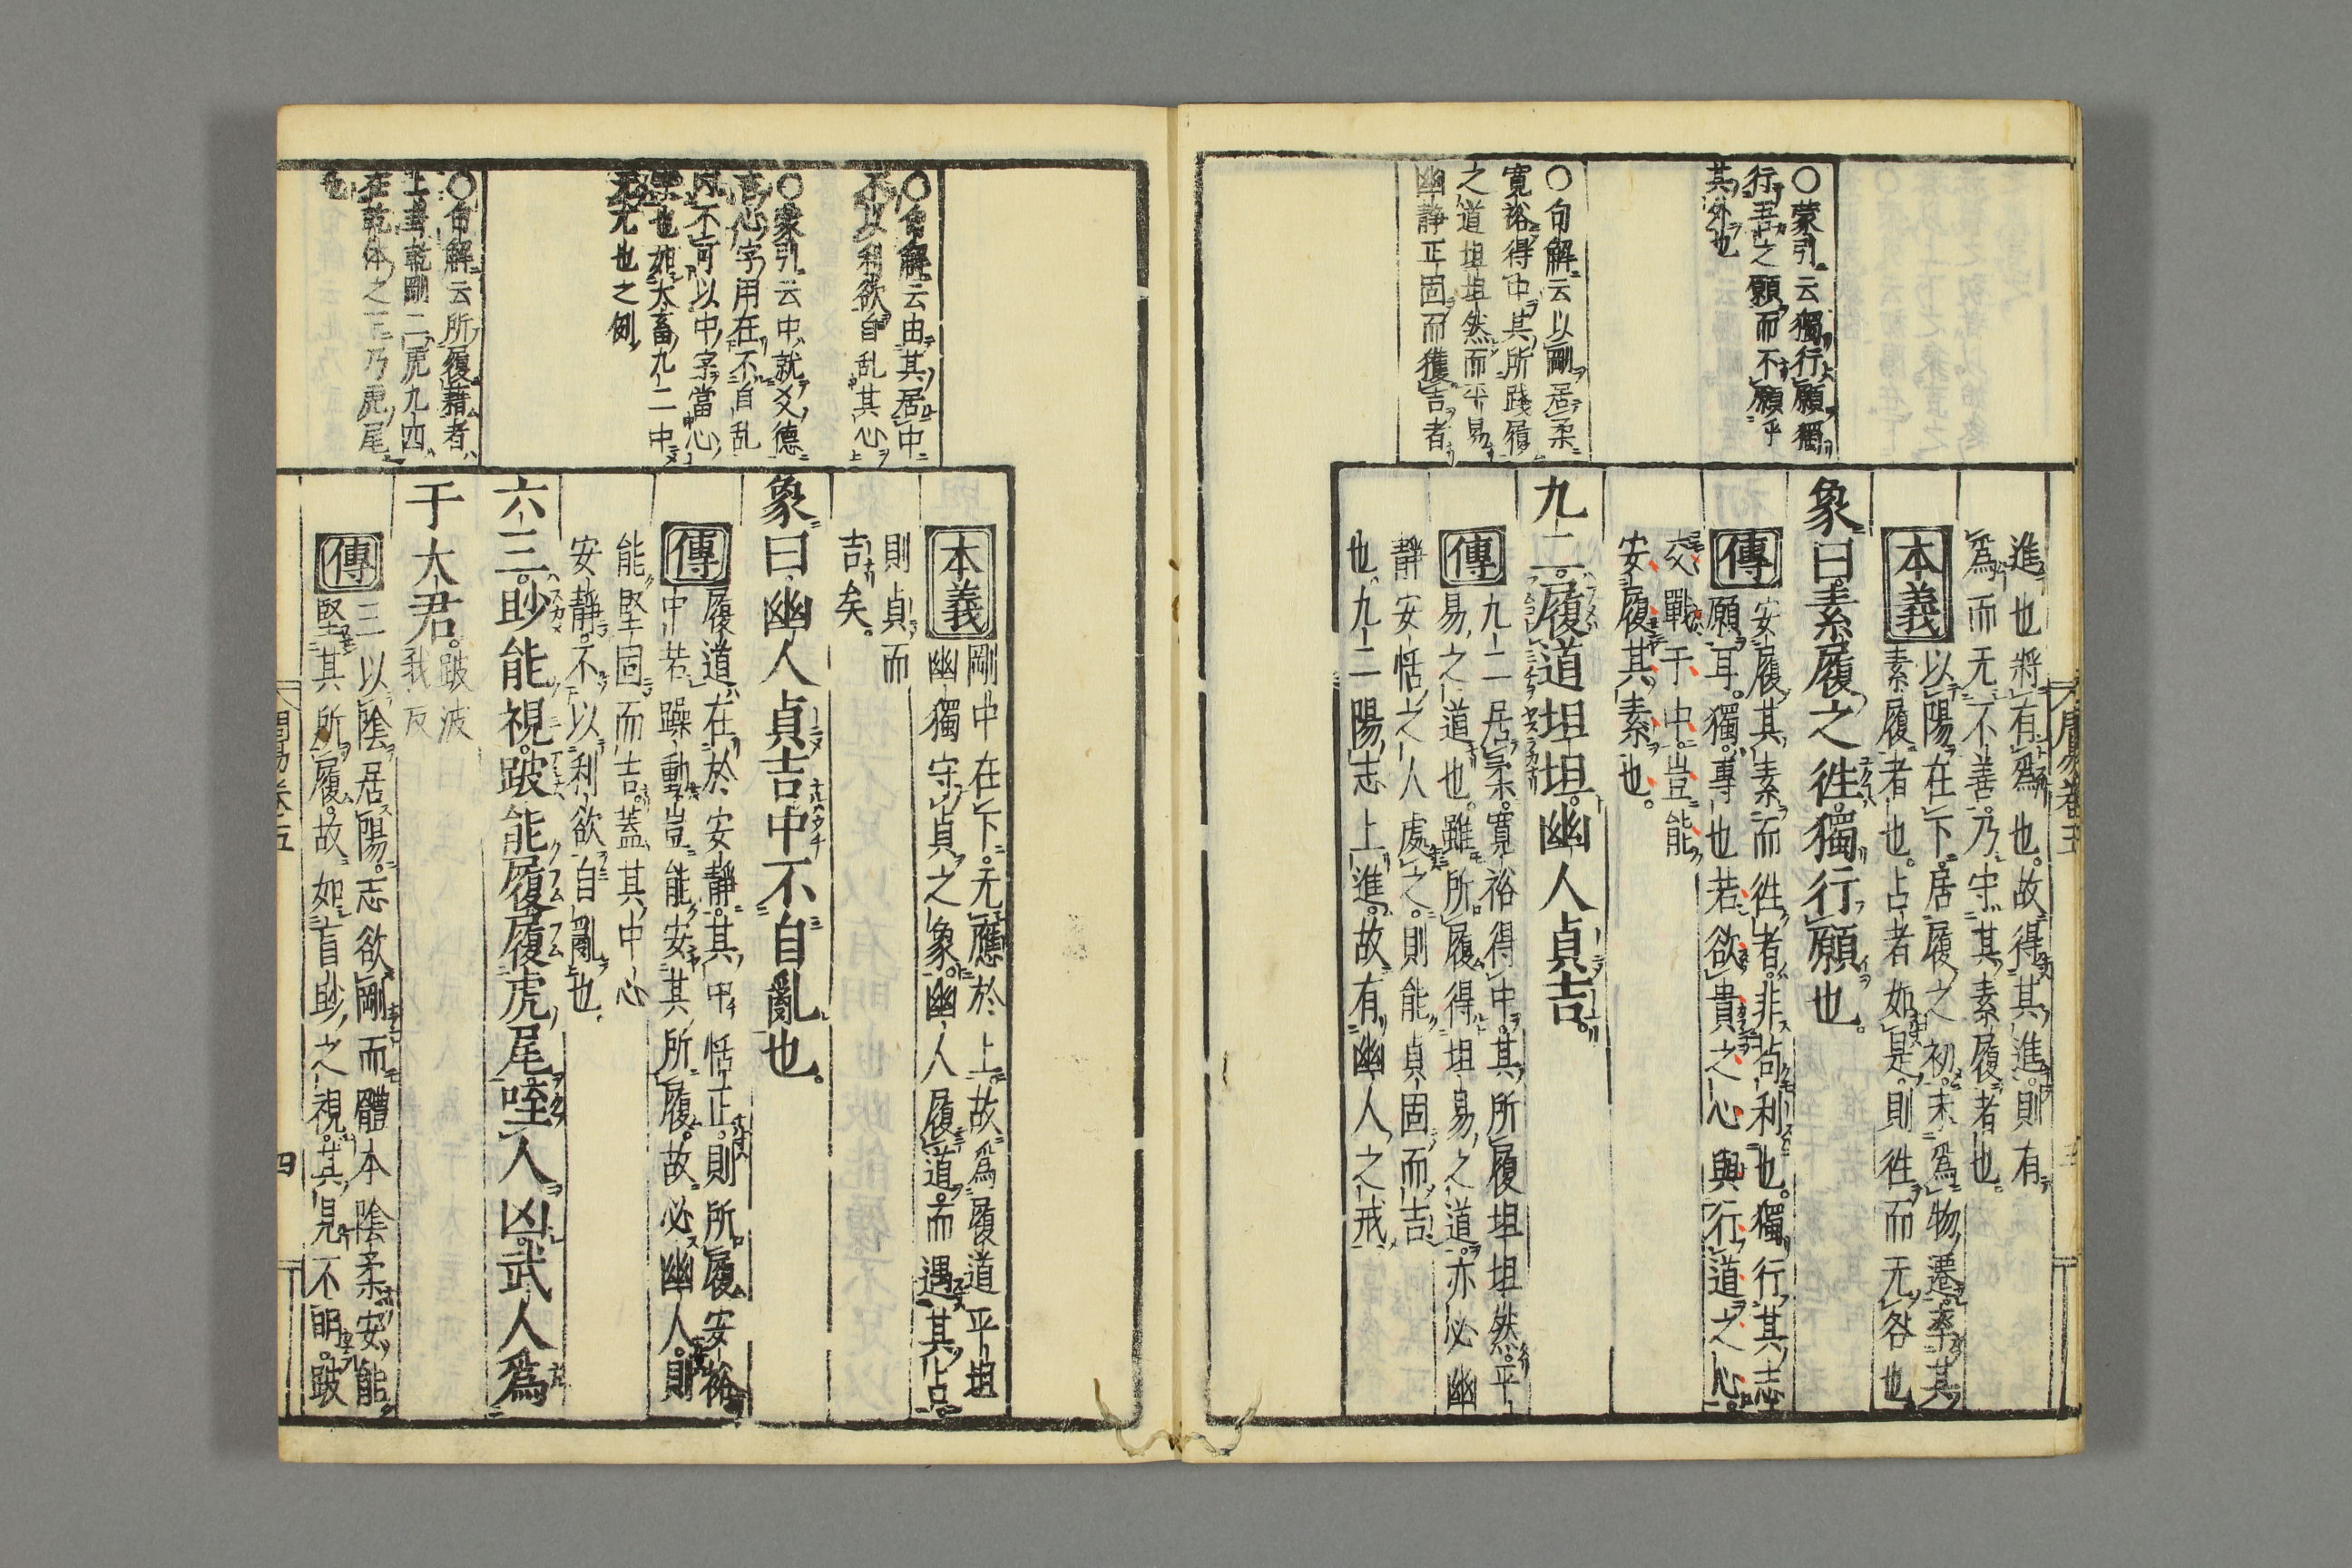 ○蒙引云獨行願獨
行吾之願而不願乎
其外也
○句解云以剛居柔
寛裕得中其所踐履
之道坦坦然而平易
幽靜正固而獲吉者
進也將有爲也故得其進則有
爲而无不善乃守其素履者也
本義
以陽在下居履之初未爲物遷率其
素履者也占者如是則徃而无咎也
象曰素履之徃獨行願也
傳
安履其素而徃者非苟利也獨行其志
願耳獨專也若欲貴之心與行道之心
交戰于中豈能
安履其素也
九二履道坦坦幽人貞吉
傳
九二居柔寛裕得中其所履坦坦然平
易之道也雖所履得坦易之道亦必幽
靜安恬之人處之則能貞固而吉
也九二陽志上進故有幽人之戒
○句解云由其居中
不以利欲自乱其心
○蒙引云中就爻德
言心字用在不自乱
內不可以中字當心
字也如大畜九二中
无尤也之例
○句解云所履藉者
上畫乾剛二虎九四
在乾体之下乃虎尾
也
本義
剛中在下无應於上故爲履道平坦
幽獨守貞之象幽人履道而遇其占
則貞而
吉矣
象曰幽人貞吉中不自亂也
傳
履道在於安靜其中恬正則所履安裕
中若躁動豈能安其所履故必幽人則
能堅固而吉蓋其中心
安靜不以利欲自亂也
六三眇能視跛能履履虎尾咥人凶武人爲
于大君
跛波
我反
傳
三以陰居陽志欲剛而體本陰柔安能
堅其所履故如盲眇之視其見不明跛
周易卷五
四